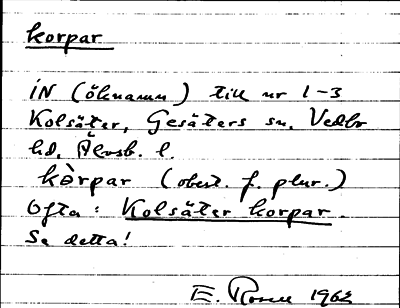 korpar
IN (öknamn) till nr 1-3
Kolsäter, Gesäters sn, Vedbo
hd, Älvsb. l.
kòrpar (obest. f. plur.)
Ofta: Kolsäter korpar.
Se detta!
E. Rosell 1962